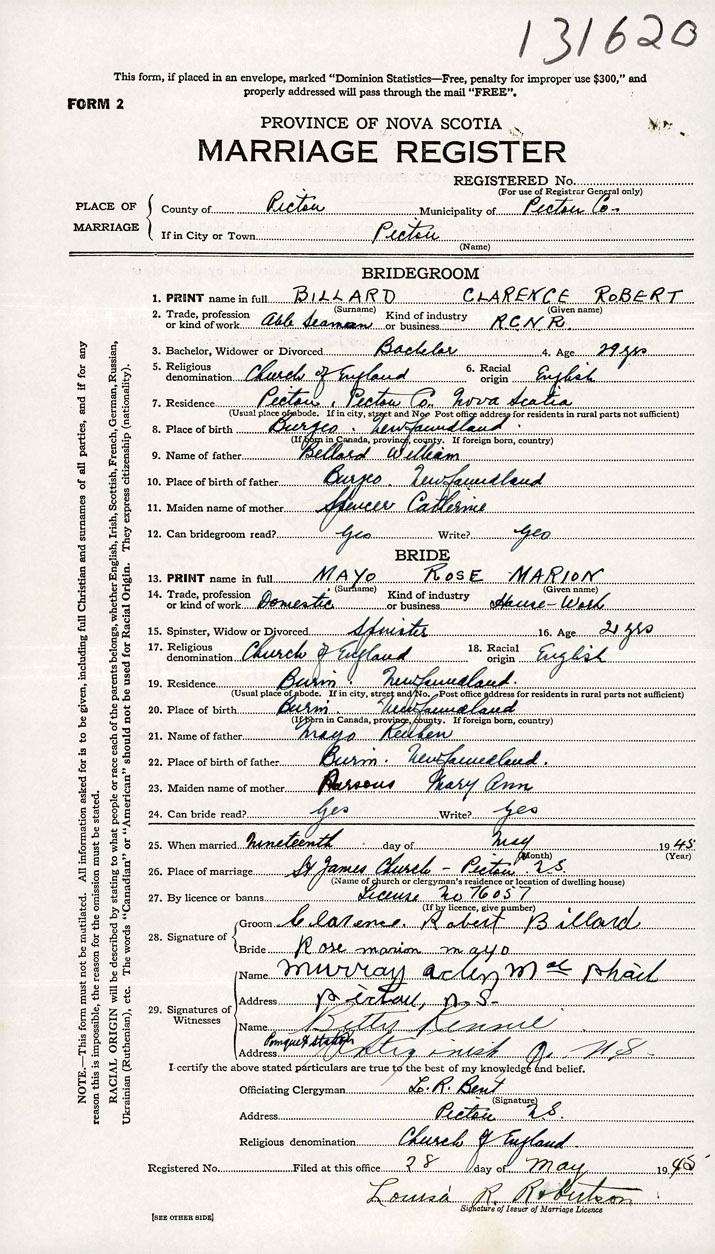 131620
This form, if placed in an envelope, marked "Dominion Statistics—Free, penalty for improper use $300," and
properly addressed will pass through the mail "FREE".
FORM 2
PROVINCE OF NOVA SCOTIA
MARRIAGE REGISTER
REGISTERED No.
(For use of Registrar General only)
PLACE OF MARRIAGE
County of Pictou Municipality of Pictou Co.
If in City or Town Pictou
(Name)
BRIDEGROOM
1. PRINT name in full BILLARD CLARENCE ROBERT
(Surname) (Given name)
2. Trade, profession or kind of work Able Seaman Kind of industry or business R.C.N.R.
3. Bachelor, Widower or Divorced Bachelor 4. Age 29 yrs
5. Religious denomination Church of England 6. Racial origin English
7. Residence Pictou, Pictou Co. Nova Scotia
(Usual place of abode. If in city, street and No. Post office address for residents in rural parts not sufficient)
8. Place of birth Burgeo. Newfoundland
(If born in Canada, province, county. If foreign born, country)
9. Name of father Bellard William
10. Place of birth of father Burgeo. Newfoundland
11. Maiden name of mother Spencer Catherine
12. Can bridegroom read? Yes Write? Yes
BRIDE
13. PRINT name in full MAYO ROSE MARION
(Surname) (Given name)
14. Trade, profession or kind of work Domestic Kind of industry or business House-Work
15. Spinster, Widow or Divorced Spinister 16. Age 21 yrs
17. Religious denomination Church of England 18. Racial origin English
19. Residence Burin. Newfoundland.
(Usual place of abode. If in city, street and No. Post office address for residents in rural parts not sufficient)
20. Place of birth Burin. Newfoundland
(If born in Canada, province, county. If foreign born, country)
21. Name of father Mayo Reuben
22. Place of birth of father Burin. Newfoundland.
23. Maiden name of mother Parsons Mary Ann
24. Can bride read? Yes Write? Yes
25. When married Nineteenth day of May 1945
(Month) (Year)
26. Place of marriage St James Church - Pictou N.S.
(Name of church or clergyman's residence or location of dwelling house)
27. By licence or banns License No 76057
(If by licence, give number)
28. Signature of
Groom Clarence Robert Billard
Bride Rose marion mayo
29. Signatures of Witnesses
Name Murray Mac Phail
Address Pictou, N.S.
Name Betty Rennie
Address Antigonish N.S.
I certify the above stated particulars are true to the best of my knowledge and belief.
Officiating Clergyman L.R. Bent
(Signature)
Address Pictou N.S.
Religious denomination Church of England.
Registered No. Filed at this office 28 day of May 1945
Louisa R. Robertson
Signature of Issuer of Marriage Licence
[SEE OTHER SIDE]
NOTE.—This form must not be mutilated. All information asked for is to be given, including full Christian and surnames of all parties, and if for any
reason this is impossible, the reason for the omission must be stated.
RACIAL ORIGIN will be described by stating to what people or race each of the parents belongs, whether English, Irish, Scottish, French, German, Russian,
Ukrainian (Ruthenian), etc. The words "Canadian" or "American" should not be used for Racial Origin. They express citizenship (nationality).